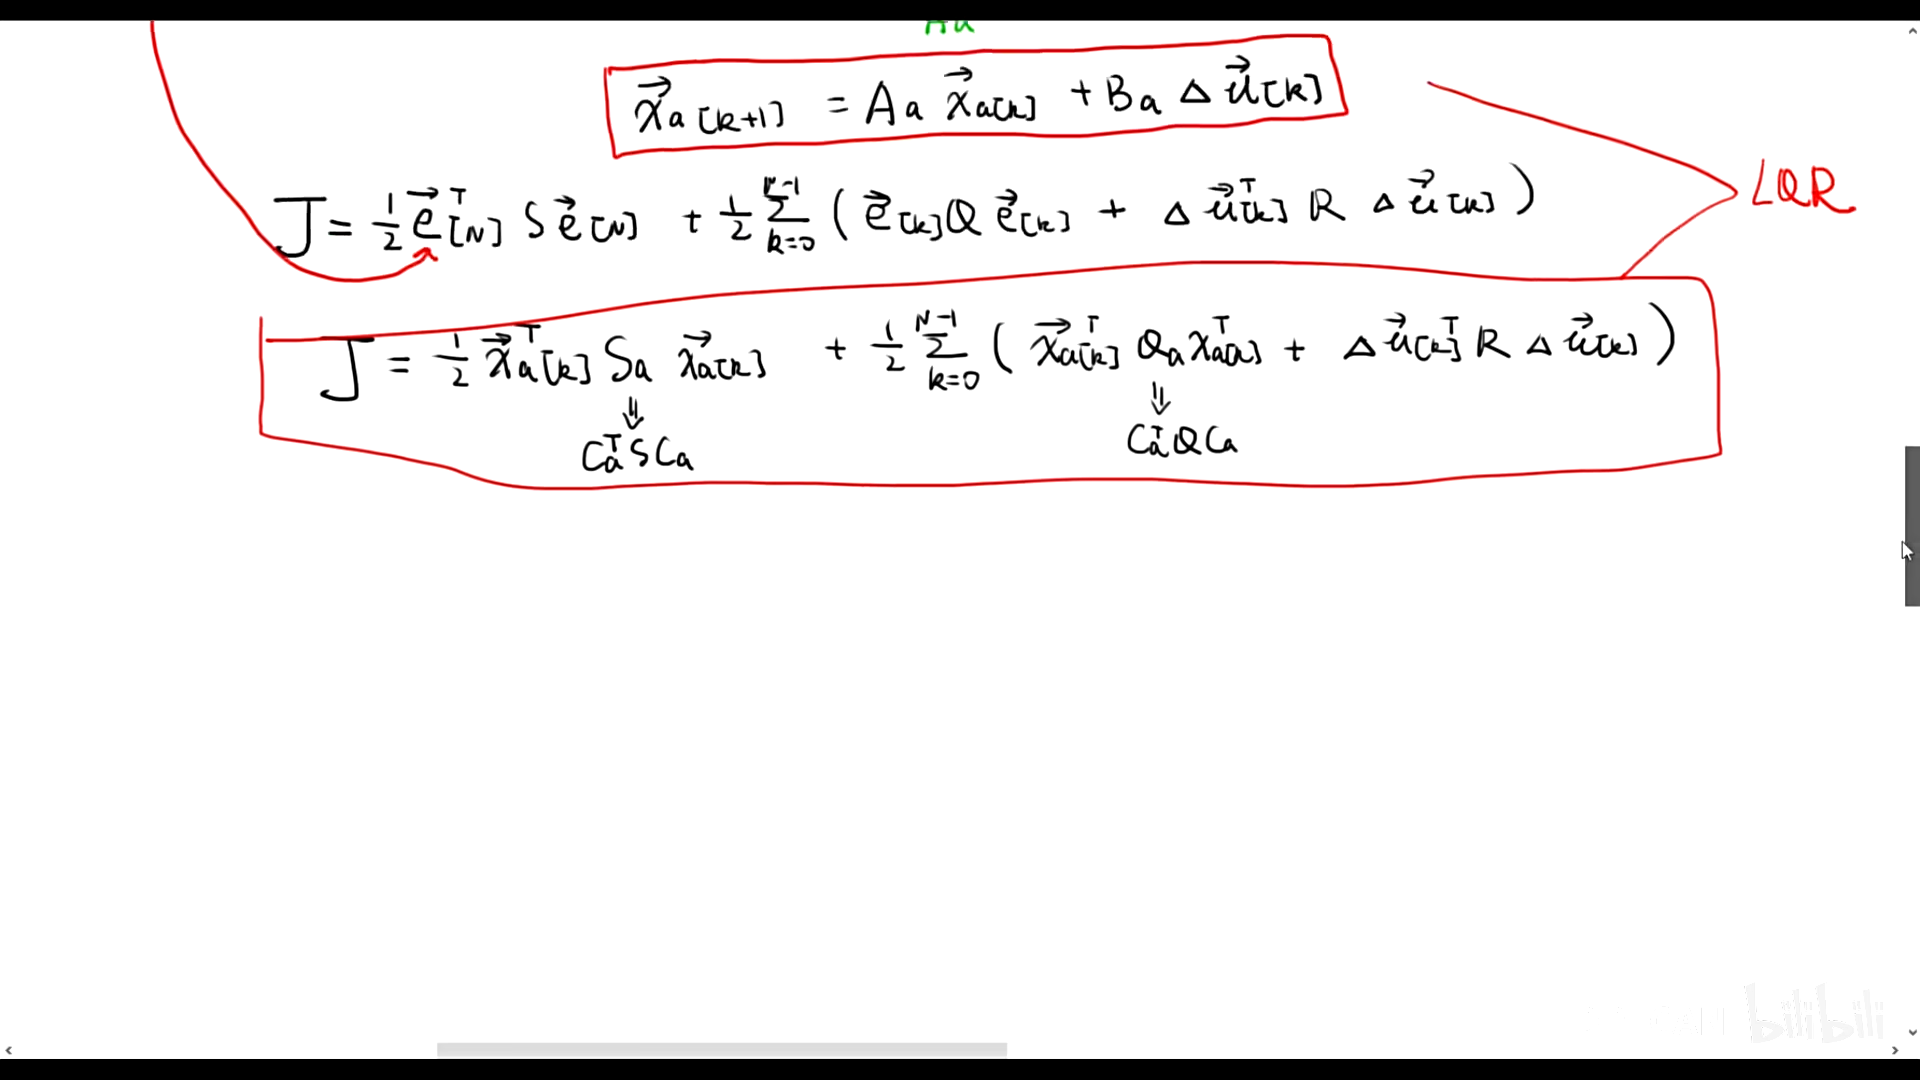 Aa
x⃗a[k+1] = Aa x⃗a[k] + Ba Δu⃗[k]
LQR
J = 1/2 e⃗ᵀ[N] S e⃗[N] + 1/2 Σ_{k=0}^{N-1} ( e⃗[k] Q e⃗[k] + Δu⃗ᵀ[k] R Δu⃗[k] )
J = 1/2 x⃗aᵀ[k] Sa x⃗a[k] + 1/2 Σ_{k=0}^{N-1} ( x⃗aᵀ[k] Qa xaᵀ[k] + Δu⃗ᵀ[k] R Δu⃗[k] )
⇓ ⇓
CaᵀSCa CaᵀQCa
bilibili